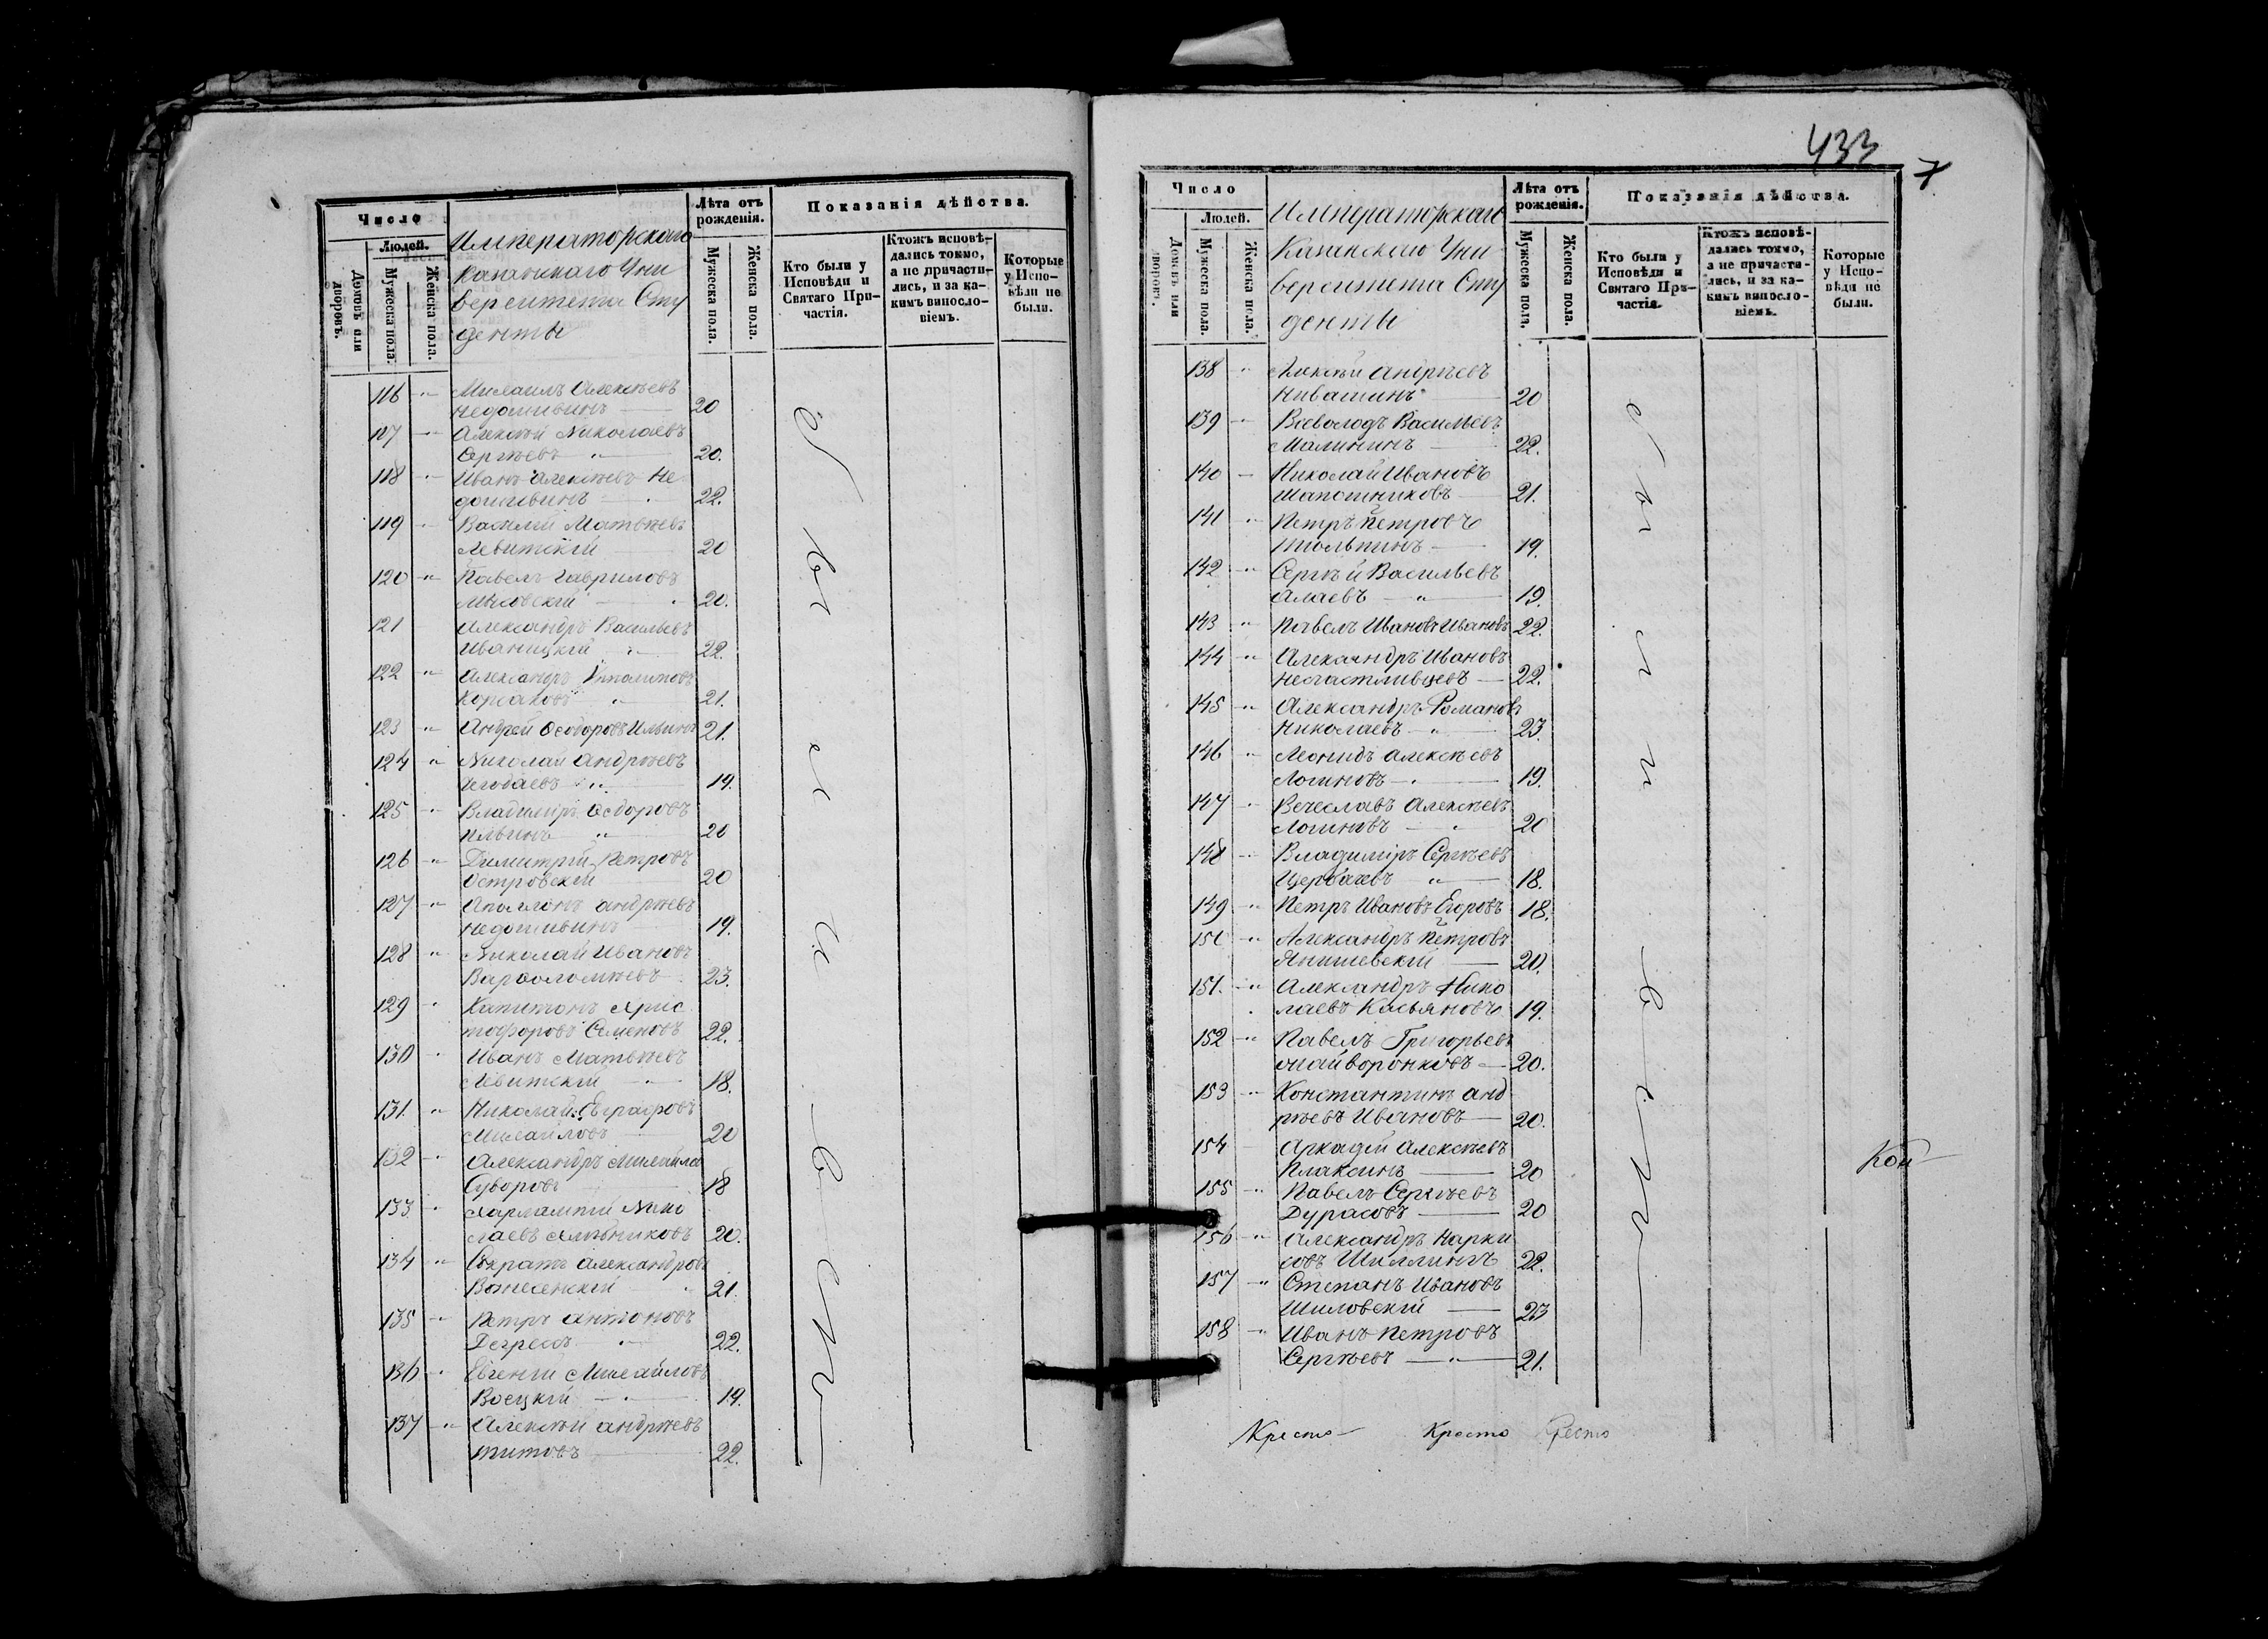 Число
Людей.
Домовъ или дворовъ.
Мужеска пола.
Женска пола.
Императорскаго
Казанскаго Уни
верситета Сту
денты
Лѣта отъ
рожденія.
Мужеска пола.
Женска пола.
Показанія дѣйства.
Кто были у
Исповѣди и
Святаго При-
частія.
Ктожъ исповѣ-
дались токмо,
а не причасти-
лись, и за ка-
кимъ винословіемъ.
Которые
у Испо-
вѣди не
были.
116 Михаилъ Алексѣевъ
Недошивинъ 20
117 Алексѣй Николаевъ
Сергѣевъ 20.
118 Иванъ Алексѣевъ Не
дошивинъ 22.
119 Василій Матвѣевъ
Левитскій 20
120 Павелъ Гавриловъ
20.
121 Александръ Васильевъ
Иваницкій 22.
122 Александръ
Корсаковъ 21.
123 Андрей Ѳеодоровъ Ильинъ 21.
124 Николай Андрѣевъ
19.
125 Владиміръ Ѳедоровъ
Ильинъ 20
126 Димитрій Петровъ
Островскій 20
127 Аполлонъ Андрѣевъ
Недошивинъ 19.
128 Николай Ивановъ
Варѳоломѣевъ 23.
129 Капитонъ Хрис
тофоровъ Семеновъ 22.
130 Иванъ Матвѣевъ
Левитскій 18.
131. Николай Евграфовъ
Михайловъ 20
132 Александръ Михайлов
Суворовъ 18
133 Харлампій Нико
лаевъ Хмѣльниковъ 20.
134 Сократъ Александровъ
Вознесенскій 21.
135 Петръ Антоновъ
22.
136 Евгеній Михайловъ
19.
137 Алексѣй Андрѣевъ
Титовъ 22.
были
всѣ
433
7
Число
Людей.
Домовъ или дворовъ.
Мужеска пола.
Женска пола.
Императорскаго
Казанскаго Уни
верситета Сту
денты
Лѣта отъ
рожденія.
Мужеска пола.
Женска пола.
Показанія дѣйства.
Кто были у
Исповѣди и
Святаго При-
частія.
Ктожъ исповѣ-
дались токмо,
а не причасти-
лись, и за ка-
кимъ винословіемъ.
Которые
у Испо-
вѣди не
были.
138 Алексѣй Андрѣевъ
Ивашинъ 20
139 Всеволодъ Васильевъ
Малининъ 22.
140 Николай Ивановъ
Шапошниковъ 21.
141 Петръ Петровъ
Тюльпинъ 19.
142 Сергѣй Васильевъ
Алаевъ 19.
143 Павелъ Ивановъ Ивановъ 22.
144 Александръ Ивановъ
Несчастливцевъ 22.
145 Александръ Романовъ
Николаевъ 23.
146 Леонидъ Алексѣевъ
Логиновъ 19.
147 Вечеславъ Алексѣевъ
Логиновъ 20
148 Владиміръ Сергѣевъ
Щербачевъ 18.
149 Петръ Ивановъ Егоровъ 18.
150 Александръ Петровъ
Янишевскій 20.
151. Александръ Нико
лаевъ Касьяновъ 19.
152 Павелъ Григорьевъ
Жайворонковъ 20.
153 Константинъ Анд
рѣевъ Ивановъ 20.
154 Аркадій Алексѣевъ
Плаксинъ 20
155 Павелъ Сергѣевъ
Дурасовъ 20
156 Александръ Нарки
совъ Шиллингъ 22.
157 Степанъ Ивановъ
Шиловскій 23
158 Иванъ Петровъ
Сергѣевъ 21.
были
всѣ
Кой
Кресто Кресто Ресто